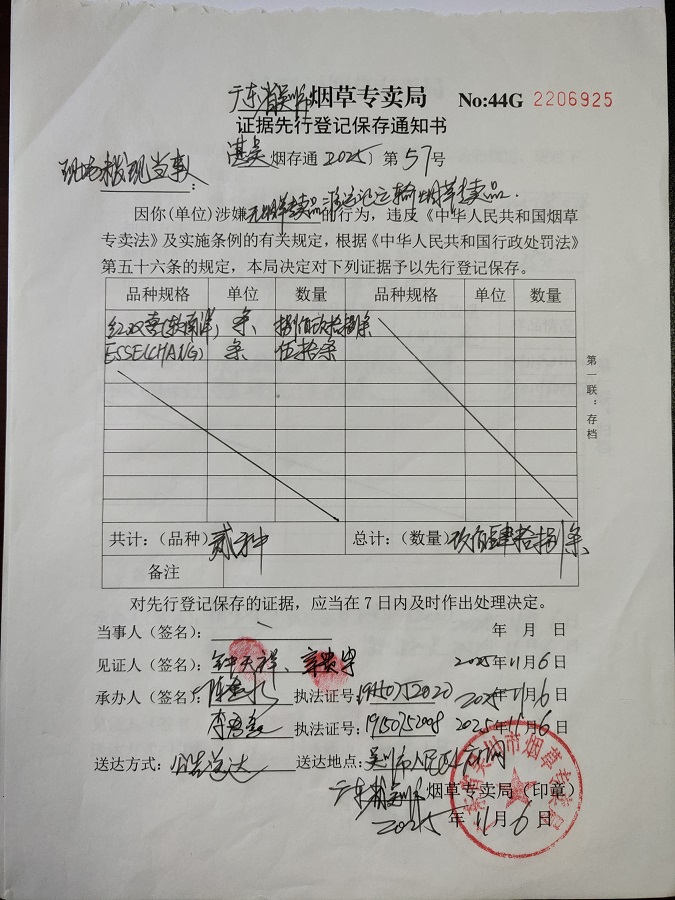 广东省吴川市烟草专卖局 No:44G 2206925
证据先行登记保存通知书
湛吴烟存通〔2025〕第57号
现场未发现当事人:
因你(单位)涉嫌无烟草专卖品准运证运输烟草专卖品的行为，违反《中华人民共和国烟草
专卖法》及实施条例的有关规定，根据《中华人民共和国行政处罚法》
第五十六条的规定，本局决定对下列证据予以先行登记保存。
品种规格 单位 数量 品种规格 单位 数量
红双喜(软南洋) 条 捌佰玖拾捌条
ESSE(CHANG) 条 伍拾条
第一联：存档
共计：(品种) 贰种 总计：(数量) 玖佰肆拾捌条
备注
对先行登记保存的证据，应当在7日内及时作出处理决定。
当事人（签名）： 年 月 日
见证人（签名）：钟天祥、 2025年11月6日
承办人（签名）： 执法证号:19150752020 2025年11月6日
执法证号:19150752008 2025年11月6日
送达方式：公告送达 送达地点：吴川市人民政府网
广东省吴川市烟草专卖局（印章）
2025年11月6日
广东省吴川市烟草专卖局